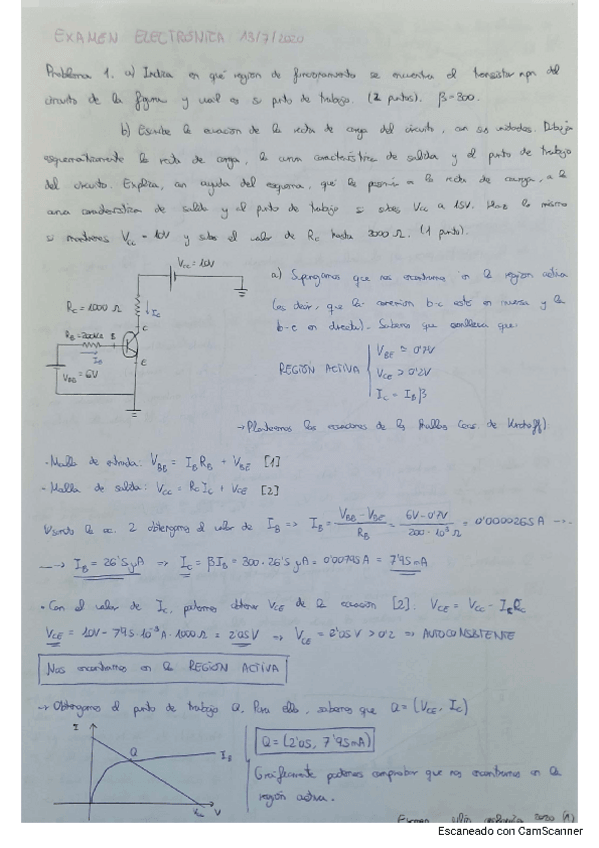 EXAMEN ELECTRÓNICA 13/7/2020
Problema 1. a) Indica en qué región de funcionamiento se encuentra el transistor npn del
circuito de la figura y cual es su punto de trabajo. (2 puntos). β=300.
b) Escribe la ecuación de la recta de carga del circuito, con sus unidades. Dibuja
esquemáticamente la recta de carga, la curva característica de salida y el punto de trabajo
del circuito. Explica, con ayuda del esquema, qué le pasaría a la recta de carga, a la
curva característica de salida y al punto de trabajo si subes Vcc a 15V. Haz lo mismo
si mantienes Vcc = 10V y subes el valor de Rc hasta 2000 Ω. (1 punto).
Vcc = 10V
Rc = 1000 Ω
Ic
C
RB = 200kΩ
B
IB
E
VBB = 6V
a) Supongamos que nos encontramos en la región activa
(es decir, que la conexión b-c esté en inversa y la
b-e en directa). Sabemos que conlleva que:
REGIÓN ACTIVA
VBE = 0'7V
VCE > 0'2V
IC = IB β
→ Planteamos las ecuaciones de las mallas (ecs. de Kirchoff)
• Malla de entrada: VBB = IB RB + VBE [1]
• Malla de salida: VCC = RC IC + VCE [2]
Usando la ec. 2 obtengamos el valor de IB => IB = VBB - VBE / RB = 6V - 0'7V / 200·10³ Ω = 0'0000265 A ---
--→ IB = 26'5 μA => IC = βIB = 300·26'5 μA = 0'00795A = 7'95 mA
• Con el valor de IC, podemos obtener VCE de la ecuación [2]: VCE = VCC - IC RC
VCE = 10V - 7'95·10⁻³A·1000 Ω = 2'05V => VCE = 2'05V > 0'2 => AUTOCONSISTENTE
Nos encontramos en la REGIÓN ACTIVA
→ Obtengamos el punto de trabajo Q. Para ello, sabemos que Q = (VCE, IC)
I
Q
IB
Vcc
V
Q = (2'05, 7'95mA)
Gráficamente podemos comprobar que nos encontramos en la
región activa.
Examen 2020 (1)
Escaneado con CamScanner